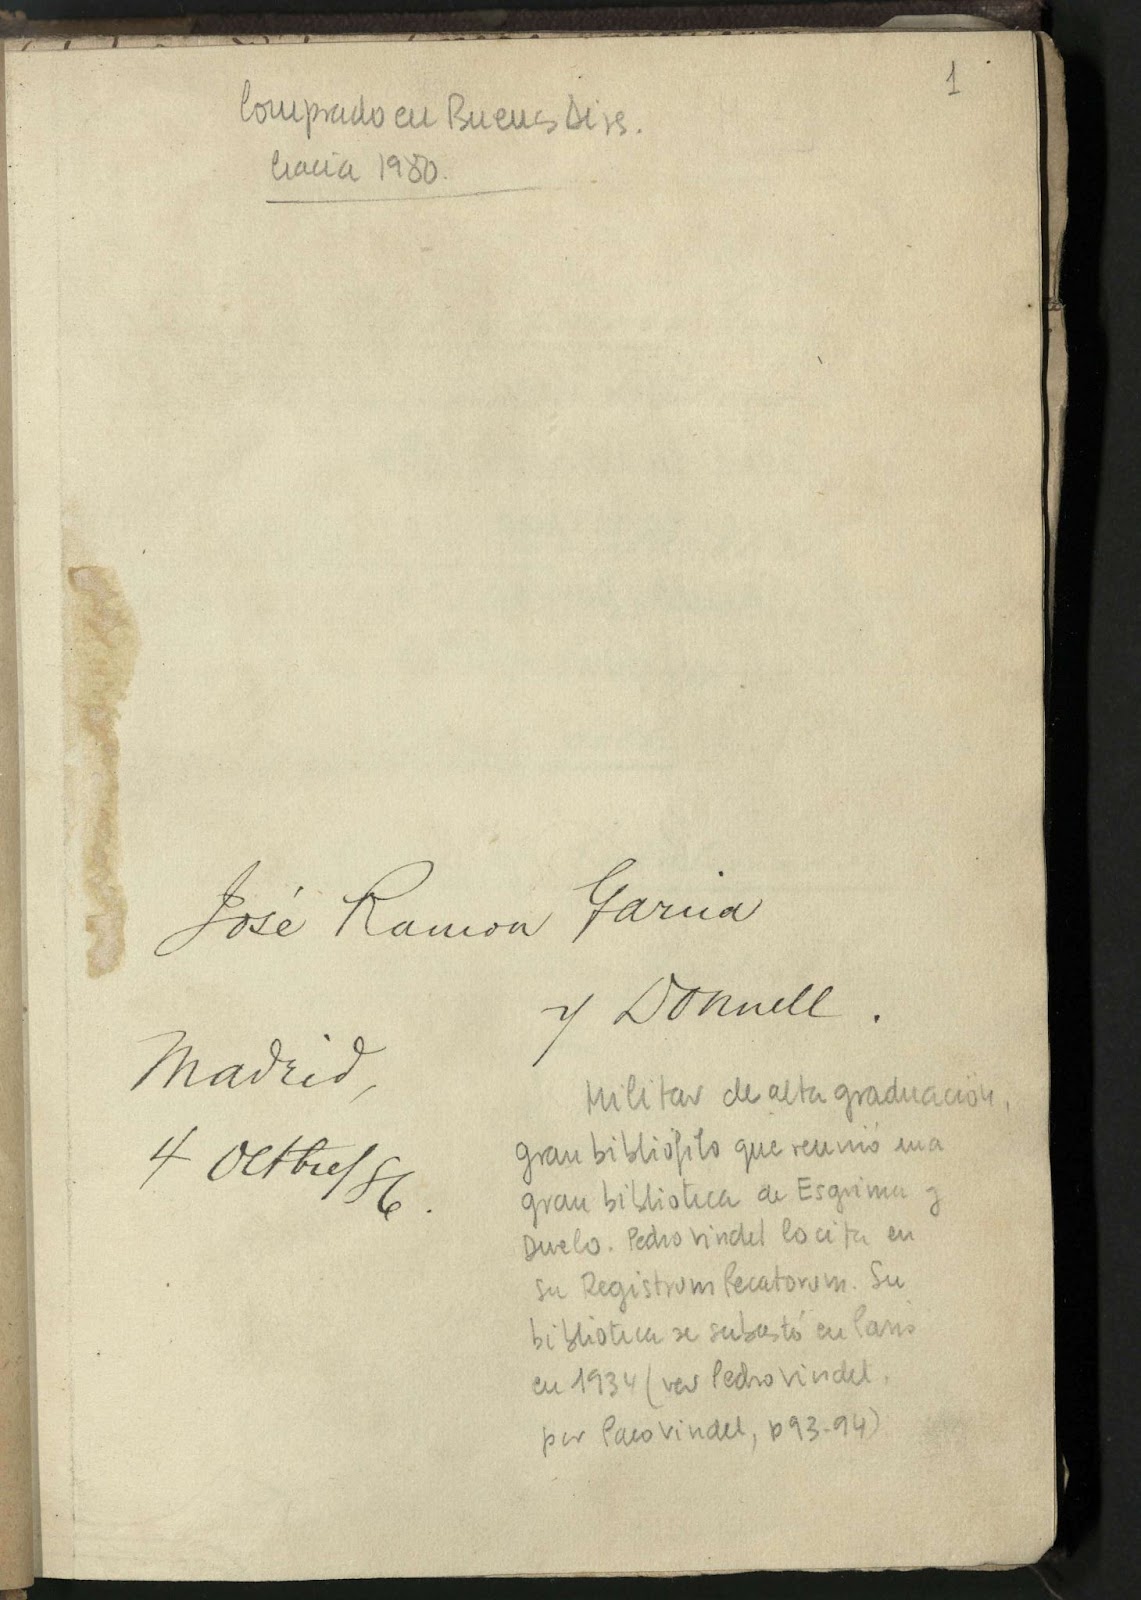 1
Comprado en Buenos Aires.
hacia 1980.
José Ramon Garcia
y Donnell.
Madrid,
4 Octbre/86.
Militar de alta graduación,
gran bibliófilo que reunió una
gran biblioteca de Esgrima y
Duelo. Pedro Vindel lo cita en
su Registrum Pecatorum. Su
biblioteca se subastó en Paris
en 1934 (ver Pedro Vindel,
por Paco Vindel, p 93-94)